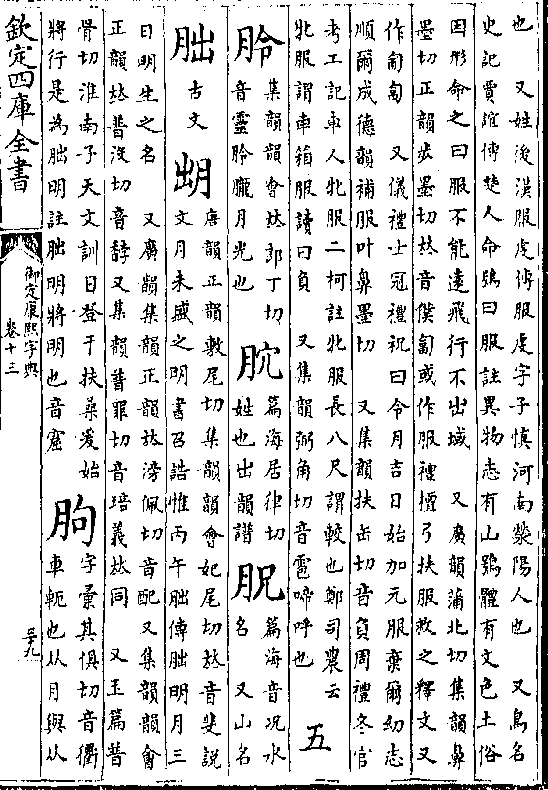 也　又姓後漢服虔傳服虔字子慎河南滎陽人也　又鳥名
史記賈誼傳楚人命鴞曰服註異物志有山鴞體有文色土俗
因形命之曰服不能遠飛行不出域　又廣韻蒲北切集韻鼻
墨切正韻步墨切𠀤音僰匐或作服禮檀弓扶服救之釋文又
作匍匐　又儀禮士冠禮祝曰令月吉日始加元服棄爾幼志
順爾成德韻補服叶鼻墨切　又集韻扶缶切音負周禮冬官
考工記車人牝服二柯註牝服長八尺謂較也鄭司農云
牝服謂車箱服讀曰負　又集韻弼角切音雹啼呼也　五
朎
集韻韻會𠀤郎丁切
音靈朎朧月光也
䏙
篇海居律切
姓也出韻譜
䏟
篇海音况水
名　又山名
朏
古文
𣍧
唐韻正韻敷尾切集韻韻會妃尾切𠀤音斐說
文月未盛之明書召誥惟丙午朏傳朏明月三
日明生之名　又廣韻集韻正韻𠀤滂佩切音配又集韻韻會
正韻𠀤普沒切音䪬又集韻普罪切音培義𠀤同　又玉篇普
骨切淮南子天文訓日登于扶桑爰始
將行是為朏明註朏明將明也音窟
朐
字彙其俱切音衢
車軛也从月與从
欽定四庫全書
御定康熙字典
卷十三
三九